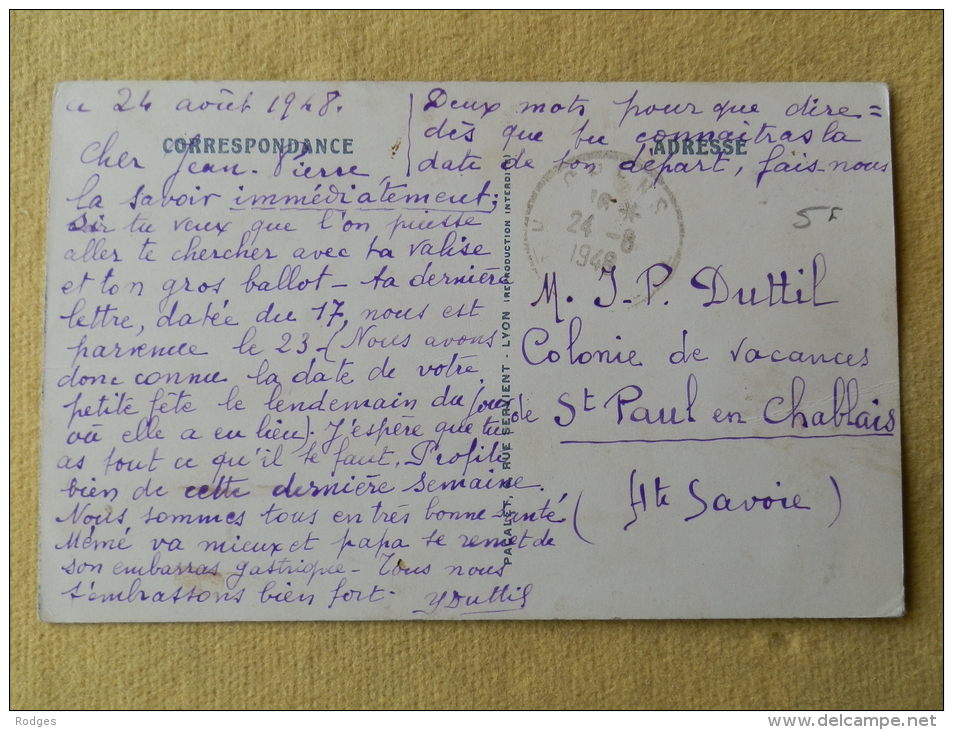 ce 24 août 1948.
CORRESPONDANCE
Cher Jean-Pierre,
Deux mots pour que dire=
dès que tu connaitras la
ADRESSE
date de ton départ, fais-nous
la savoir immédiatement;
Si tu veux que l'on puisse
aller te chercher avec ta valise
et ton gros ballot - ta dernière
lettre, datée du 17, nous est
parvenue le 23 - (Nous avons
donc connu la date de votre
petite fête le lendemain du jour
où elle a eu lieu). J'espère que tu
as tout ce qu'il te faut. Profite
bien de cette dernière semaine.
Nous sommes tous en très bonne santé
Mémé va mieux et papa se remet de
son embarras gastrique - Tous nous
t'embrassons bien fort - YDuttil
PACALET, RUE SERVIENT - LYON (REPRODUCTION INTERDITE)
24 -8
1948
M. J-P. Duttil
Colonie de vacances
de St Paul en Chablais
(Hte Savoie)
Rodges
www.delcampe.net